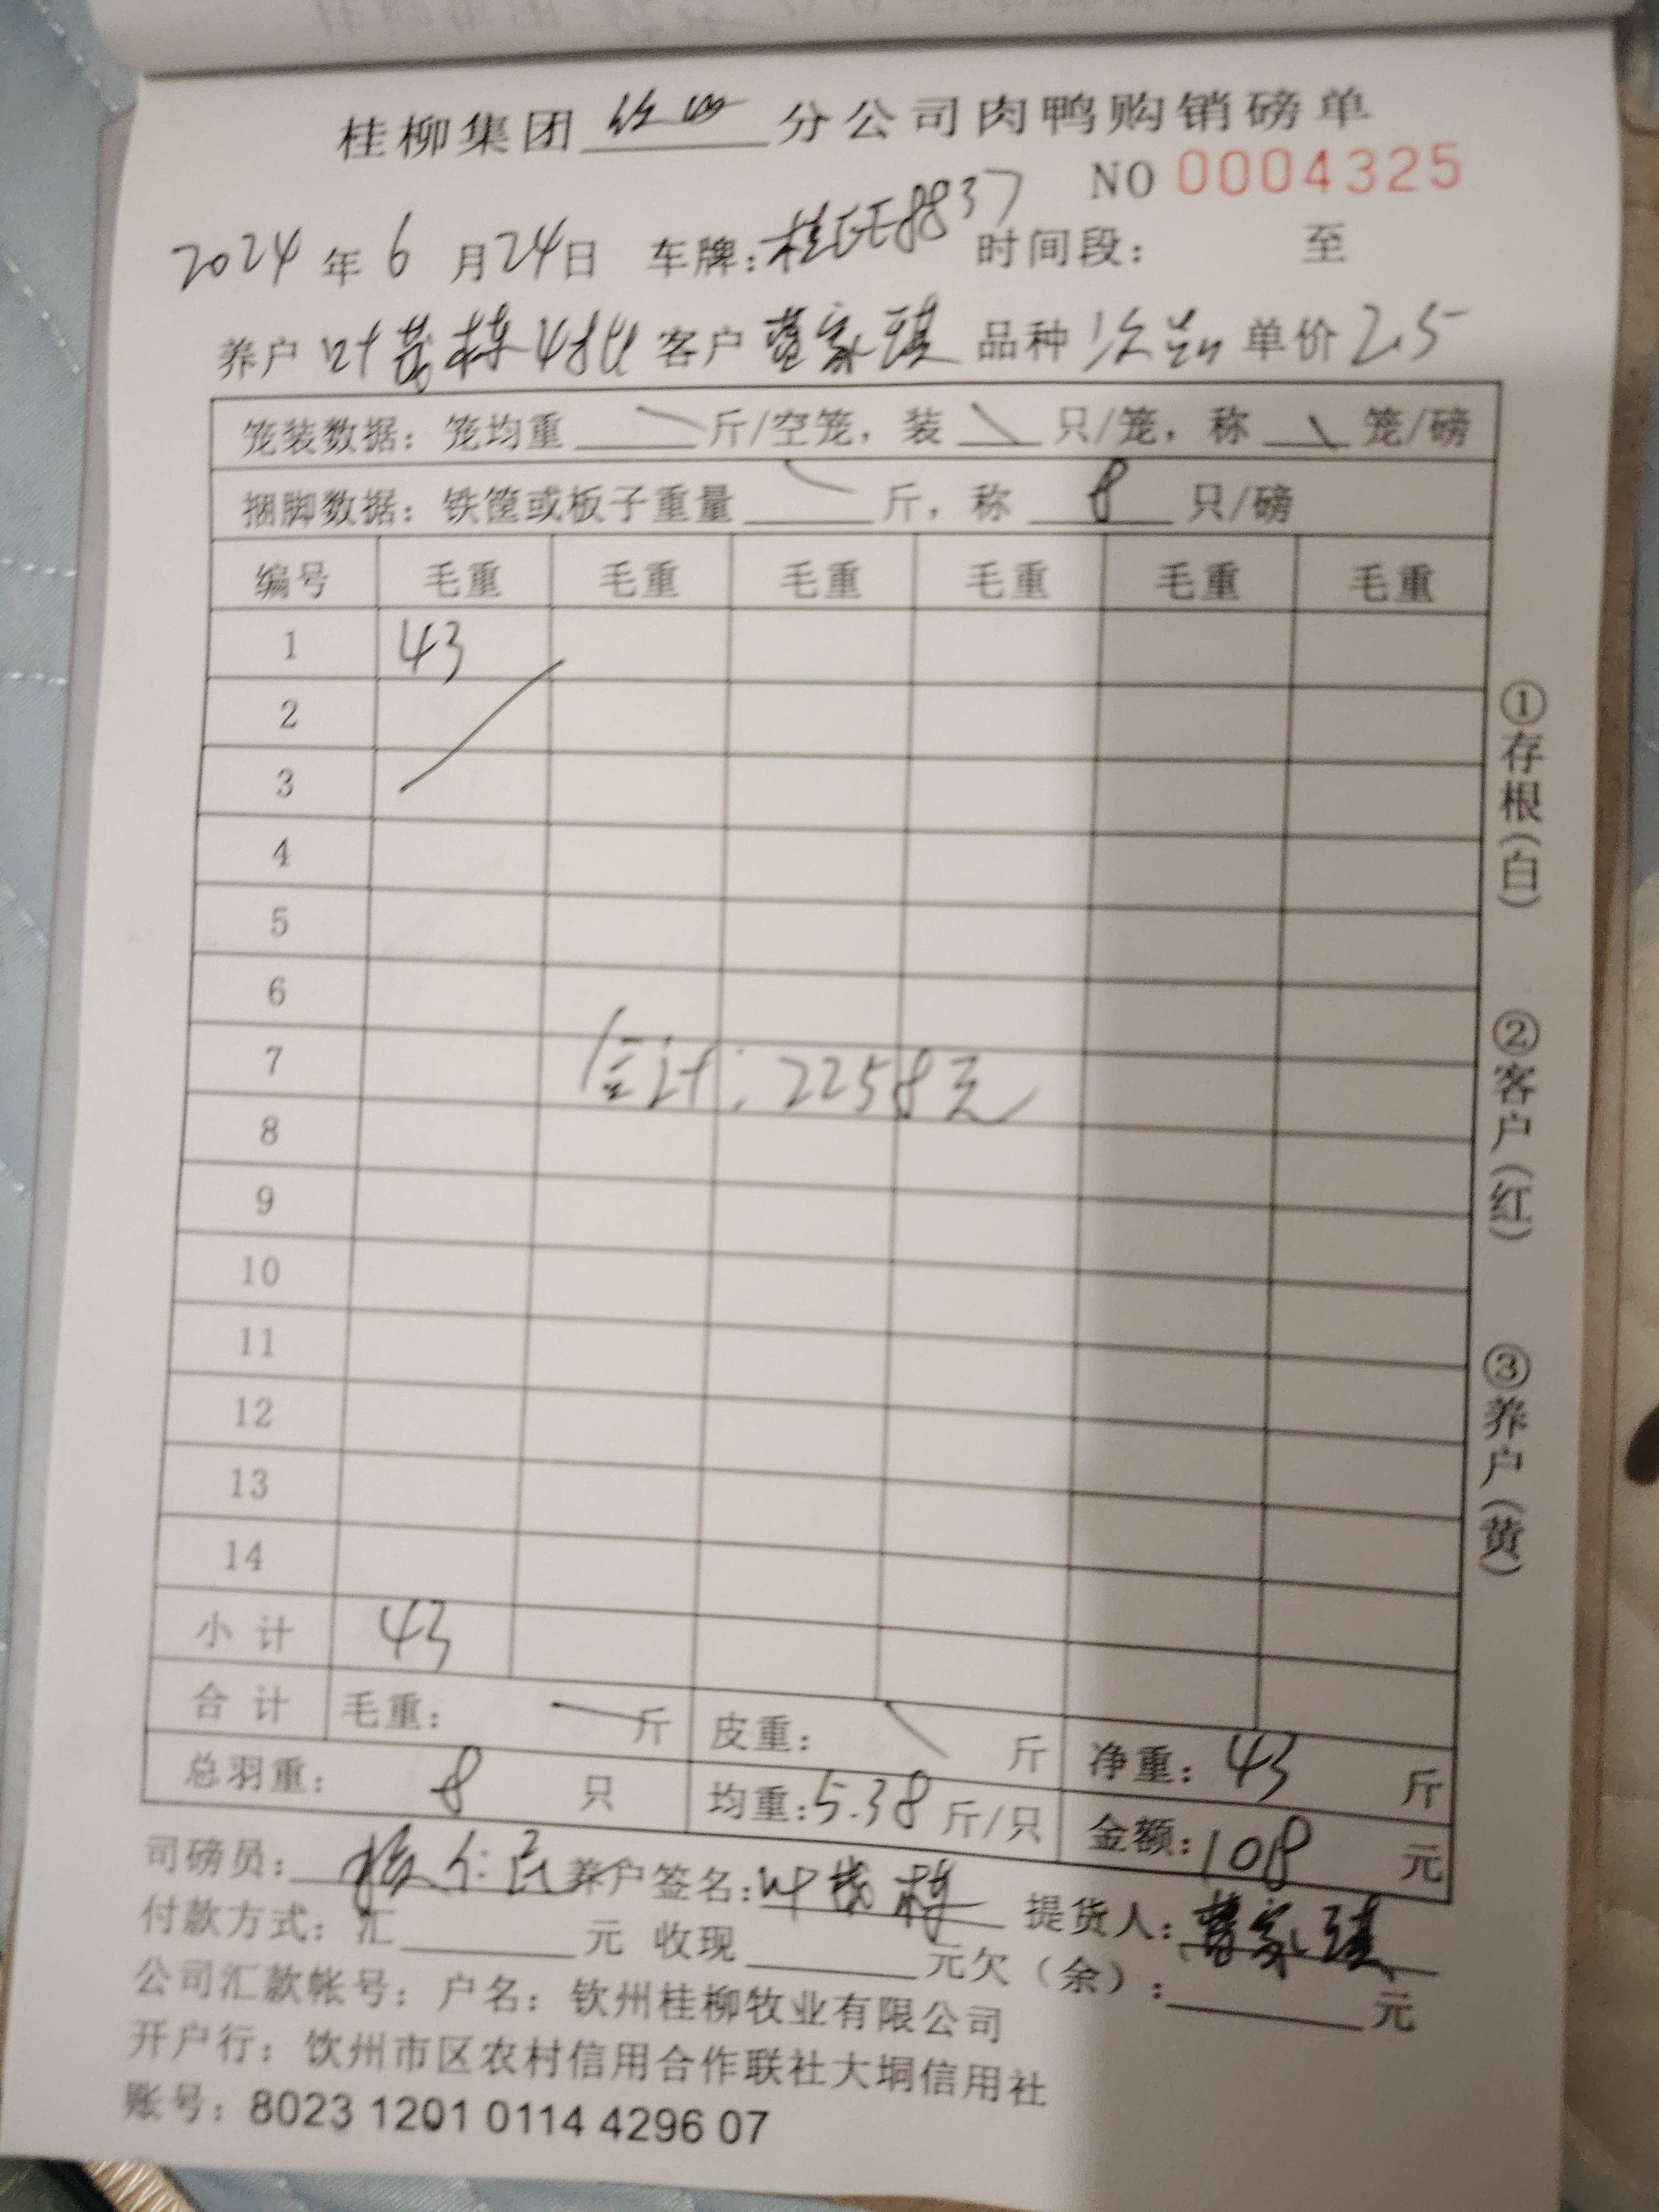 桂柳集团 分公司肉鸭购销磅单
NO 0004325
2024 年 6 月 24 日 车牌: 8837 时间段: 至
养户 叶茂栋48批 客户 曹家琪 品种 次品 单价 2.5
笼装数据: 笼均重 斤/空笼, 装 只/笼, 称 笼/磅
捆脚数据: 铁筐或板子重量 斤, 称 8 只/磅
编号 毛重 毛重 毛重 毛重 毛重 毛重
1 43
2
3
4
5
6
7
合计: 2258元
8
9
10
11
12
13
14
小计 43
合计 毛重: 斤 皮重: 斤 净重: 43 斤
总羽重: 8 只 均重: 5.38 斤/只 金额: 108 元
司磅员: 养户签名: 叶茂栋 提货人: 曹家琪
付款方式: 汇 元 收现 元欠(余): 元
公司汇款帐号: 户名: 钦州桂柳牧业有限公司
开户行: 钦州市区农村信用合作联社大垌信用社
账号: 8023 1201 0114 4296 07
①存根(白) ②客户(红) ③养户(黄)